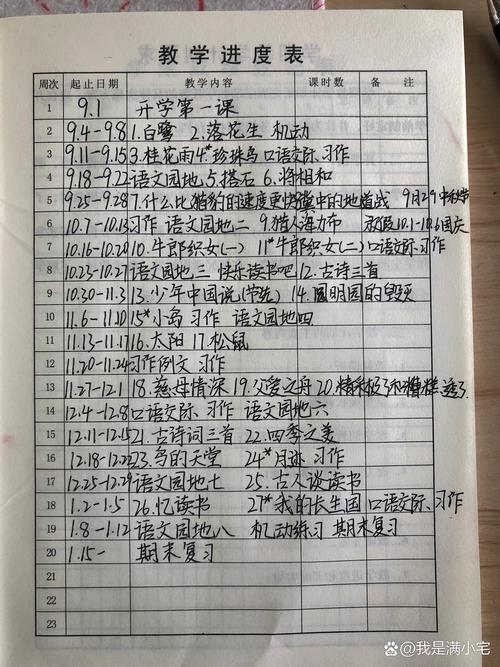 教学进度表
周次 起止日期 教学内容 课时数 备 注
1 9.1 开学第一课
2 9.4-9.8 1.白鹭 2.落花生 机动
3 9.11-9.15 3.桂花雨 4.*珍珠鸟 口语交际、习作
4 9.18-9.22 语文园地、5.搭石 6.将相和
5 9.25-9.28 7.什么比猎豹的速度更快 8.冀中的地道战 9月29中秋节
6 10.7-10.13 习作 语文园地二 9.猎人海力布 放假10.1-10.6国庆
7 10.16-10.20 10.牛郎织女(一) 11*牛郎织女(二) 口语交际、习作
8 10.23-10.27 语文园地三 快乐读书吧 12.古诗三首
9 10.30-11.3 13.少年中国说(节选) 14.圆明园的毁灭
10 11.6-11.10 15*小岛 习作 语文园地四
11 11.13-11.17 16.太阳 17.松鼠
12 11.20-11.24 习作例文 习作
13 11.27-12.1 18.慈母情深 19.父爱之舟 20.*精彩极了和糟糕透了
14 12.4-12.8 口语交际、习作 语文园地六
15 12.11-12.15 21.古诗词三首 22.四季之美
16 12.18-12.22 23.鸟的天堂 24*月迹 习作
17 12.25-12.29 语文园地七 25.古人谈读书
18 1.2-1.5 26.忆读书 27*我的长生国 口语交际、习作
19 1.8-1.12 语文园地八 机动练习 期末复习
20 1.15- 期末复习
21
22
23
@我是满小宅